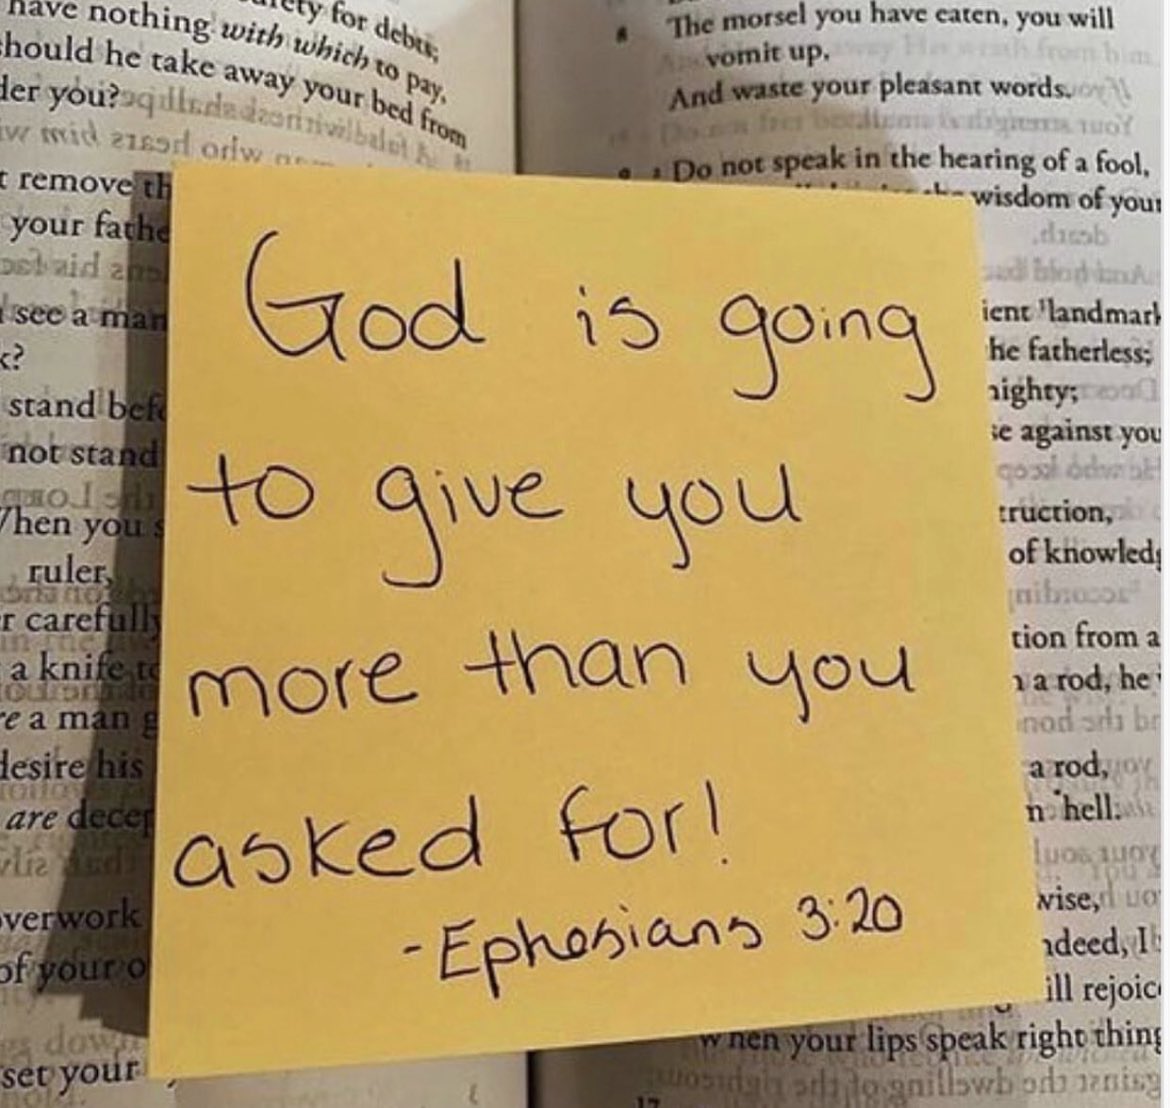 have nothing with which to pay,
should he take away your bed from
der you?
t remove th
your fathe
see a man
k?
stand befo
not stand
When you s
ruler,
r carefully
a knife to
re a man g
desire his
are decep
overwork
of your o
set your
8 The morsel you have eaten, you will
vomit up,
And waste your pleasant words.
9 Do not speak in the hearing of a fool,
wisdom of your
ient landmark
he fatherless;
nighty;
se against you
truction,
of knowledg
tion from a
a rod, he
a rod,
n hell.
wise,
ndeed, I
ill rejoic
when your lips speak right thing
17
God is going
to give you
more than you
asked for!
-Ephesians 3:20